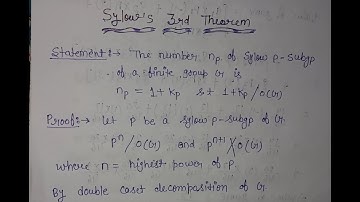 Sylow's 3rd Theorem
Statement:→ The number np of Sylow p-subgp
of a finite group G is
np = 1 + kp s t 1 + kp / O(G)
Proof:→ let P be a sylow p-subgp of G
p^n / O(G) and p^n+1 ∤ O(G)
where n = highest power of p.
By double coset decomposition of G